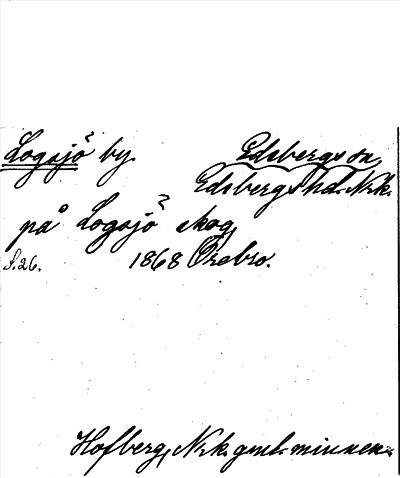 Logsjö by. Edsbergs sn,
Edsbergs hd. Nrk.
på Logsjö skog,
S.26. 1868 Örebro.
Hofberg, Nrk. gml. minnen.